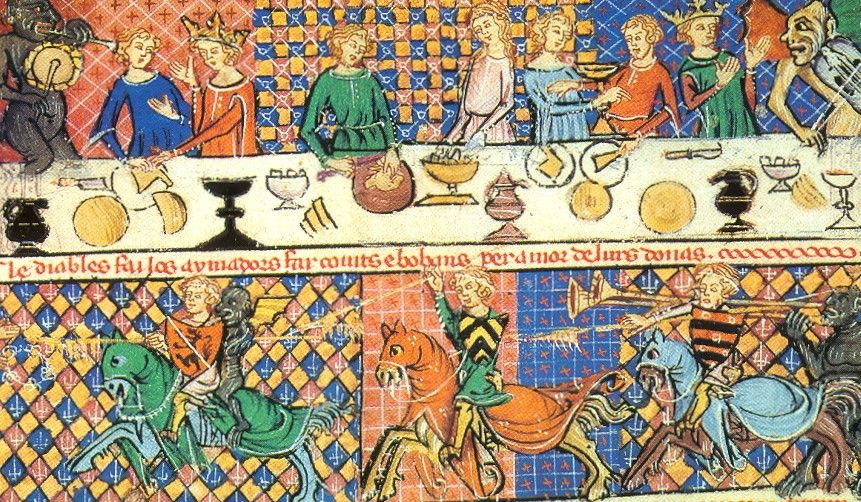 le diables fai los aymadors far couits e bobans per amor de lurs donas.